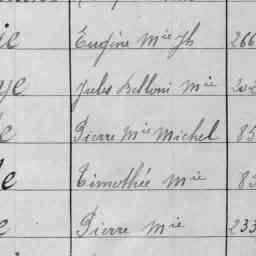 ie Eugène Mie Jh 266
ye Jules Belloni Mie 202
e Pierre Mie Michel 85
le Timothée Mie 83
e Pierre Mie 233